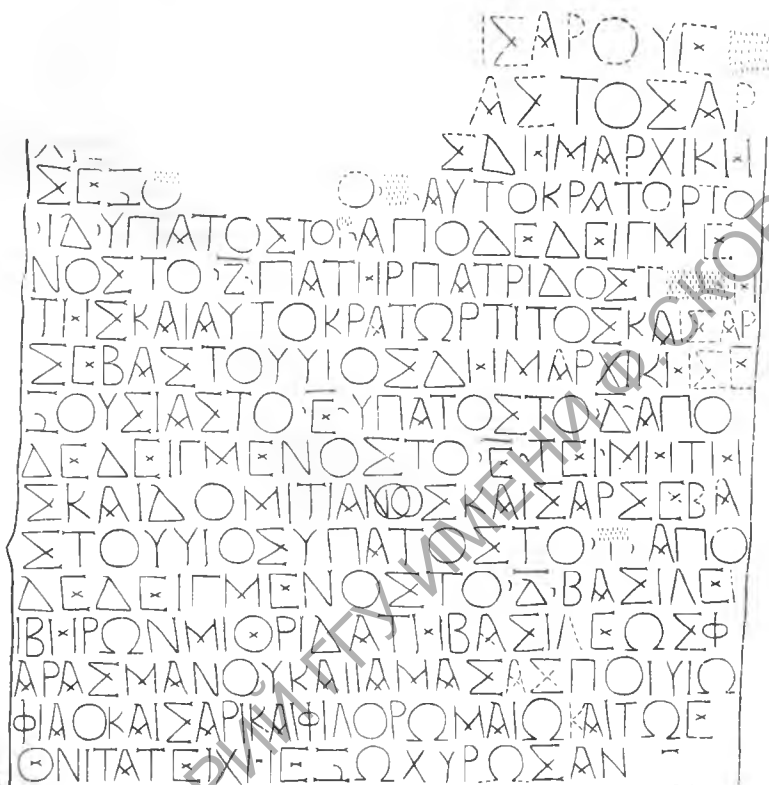 ΙΣΑΡΟΥΕ
ΑΣΤΟΣΑΡ
ΣΔΗΜΑΡΧΙΚΗ
ΣΕΞΟ Ο ΑΥΤΟΚΡΑΤΟΡΤΟ
ΙΔΥΠΑΤΟΣΤΟ ΑΠΟΔΕΔΕΙΓΜΕ
ΝΟΣΤΟΖΠΑΤΗΡΠΑΤΡΙΔΟΣΤ
ΤΗΣΚΑΙΑΥΤΟΚΡΑΤΩΡΤΙΤΟΣΚΑΙΣΑΡ
ΣΕΒΑΣΤΟΥΥΙΟΣΔΗΜΑΡΧΙΚΗΣΕ
ΞΟΥΣΙΑΣΤΟΕΥΠΑΤΟΣΤΟΔΑΠΟ
ΔΕΔΕΙΓΜΕΝΟΣΤΟΕΤΕΙΜΗΤΗ
ΣΚΑΙΔΟΜΙΤΙΑΝΟΣΚΑΙΣΑΡΣΕΒΑ
ΣΤΟΥΥΙΟΣΥΠΑΤΟΣΤΟΓΑΠΟ
ΔΕΔΕΙΓΜΕΝΟΣΤΟΔΒΑΣΙΛΕΙ
ΙΒΗΡΩΝΜΙΘΡΙΔΑΤΗΒΑΣΙΛΕΩΣΦ
ΑΡΑΣΜΑΝΟΥΚΑΙΙΑΜΑΣΑΣΠΟΙΥΙΩ
ΦΙΛΟΚΑΙΣΑΡΙΚΑΙΦΙΛΟΡΩΜΑΙΩΚΑΙΤΩΕ
ΘΝΙΤΑΤΕΙΧΗΕΞΩΧΥΡΩΣΑΝ
РИЙ ГГУ ИМЕНИ Ф.СКОР